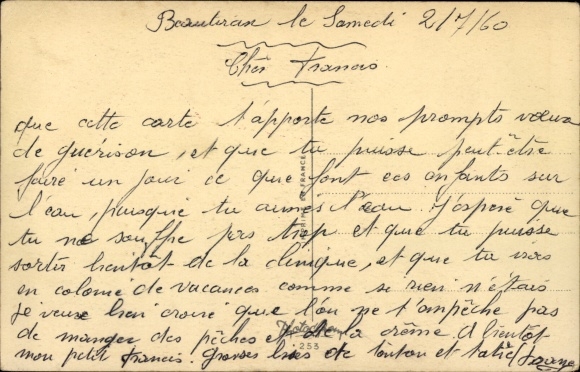 Beautiran le Samedi 2/7/60
Cher Francis
que cette carte t'apporte nos prompts vœux
de guérison, et que tu puisse peut-être
faire un jour ce que font ces enfants sur
l'eau, puisque tu aimes l'eau. J'espère que
tu ne souffre pas trop et que tu puisse
sortir bientôt de la clinique, et que tu iras
en colonie de vacances comme si rien n'étais
je veux bien croire que l'on ne t'ampêche pas
de manger des pêches et de la crême. A bientôt
mon petit Francis. Grosses bises de tonton et tatie
253
DE FRANCE